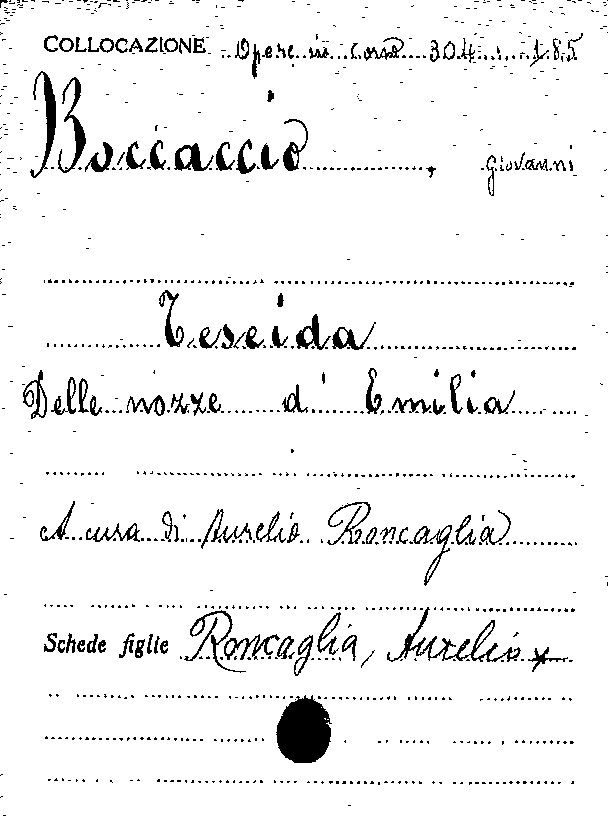 COLLOCAZIONE Opere in corso 304 : 185
Boccaccio, Giovanni
Teseida
Delle nozze d'Emilia
A cura di Aurelio Roncaglia
Schede figlie Roncaglia, Aurelio x